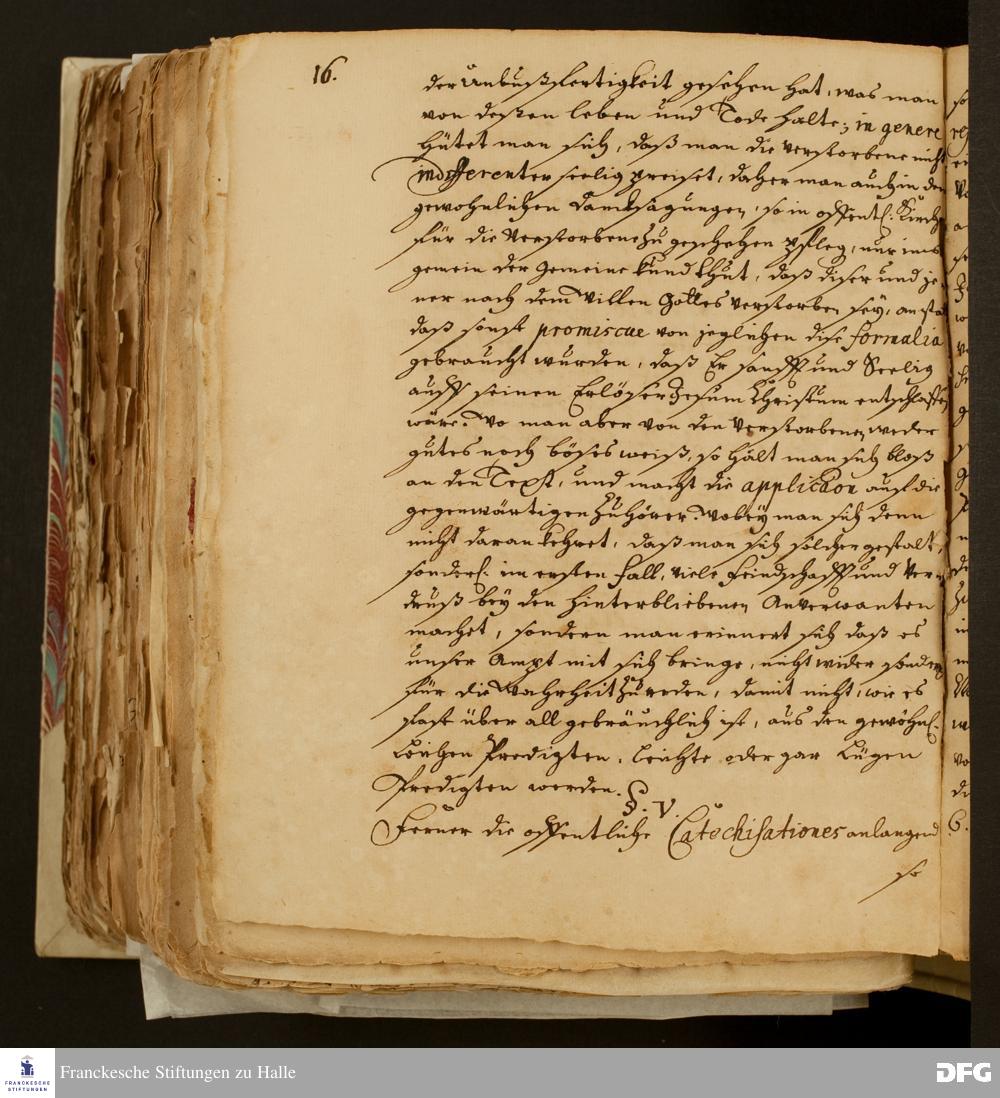 16.
der Unbußfertigkeit gesehen hat, was man
von deßen leben und Tode halte; in genere
hütet man sich, daß man die verstorbene nicht
indifferenter seelig preiset, daher man auch in den
gewohnlichen Dancksagungen, so in offentl. Kirch
für die Verstorbene zu geschehen pfleg, nur ins
gemein der Gemeine kund thut, daß diser und je
ner nach dem Willen Gottes verstorben sey, an stat
daß sonst promiscue von jeglichen dise formalia
gebraucht wurden, daß Er sanfft und Seelig
auff seinen Erlöser Jesum Christum entschlaffen
wäre. Wo man aber von den Verstorbenen weder
gutes noch böses weiß, so hält man sich bloß
an den Text, und macht die application auf die
gegenwärtigen Zuhörer. Wobey man sich denn
nicht daran kehret, daß man sich solcher gestalt,
sonderl. im ersten fall, viele feindschafft und Ver
druß bey den hinterbliebenen Anverwanten
machet, sondern man erinnert sich daß es
unser Ampt mit sich bringe, nicht wider sondern
für die Wahrheit zu reden, damit nicht, wie es
fast über all gebräuchlich ist, aus den gewöhnl.
Leichen Predigten, leichte oder gar Lügen
Predigten werden.
§. V.
Ferner die offentliche Catechisationes anlangend
so
FRANCKESCHE
STIFTUNGEN
Franckesche Stiftungen zu Halle
DFG